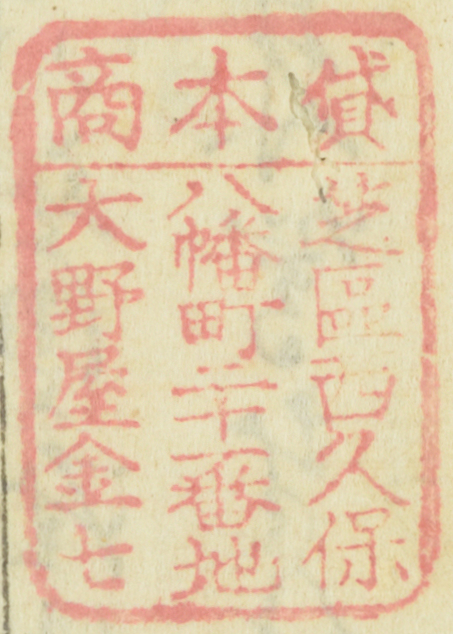 貸本商
芝區西久保
八幡町二十一番地
大野屋金七